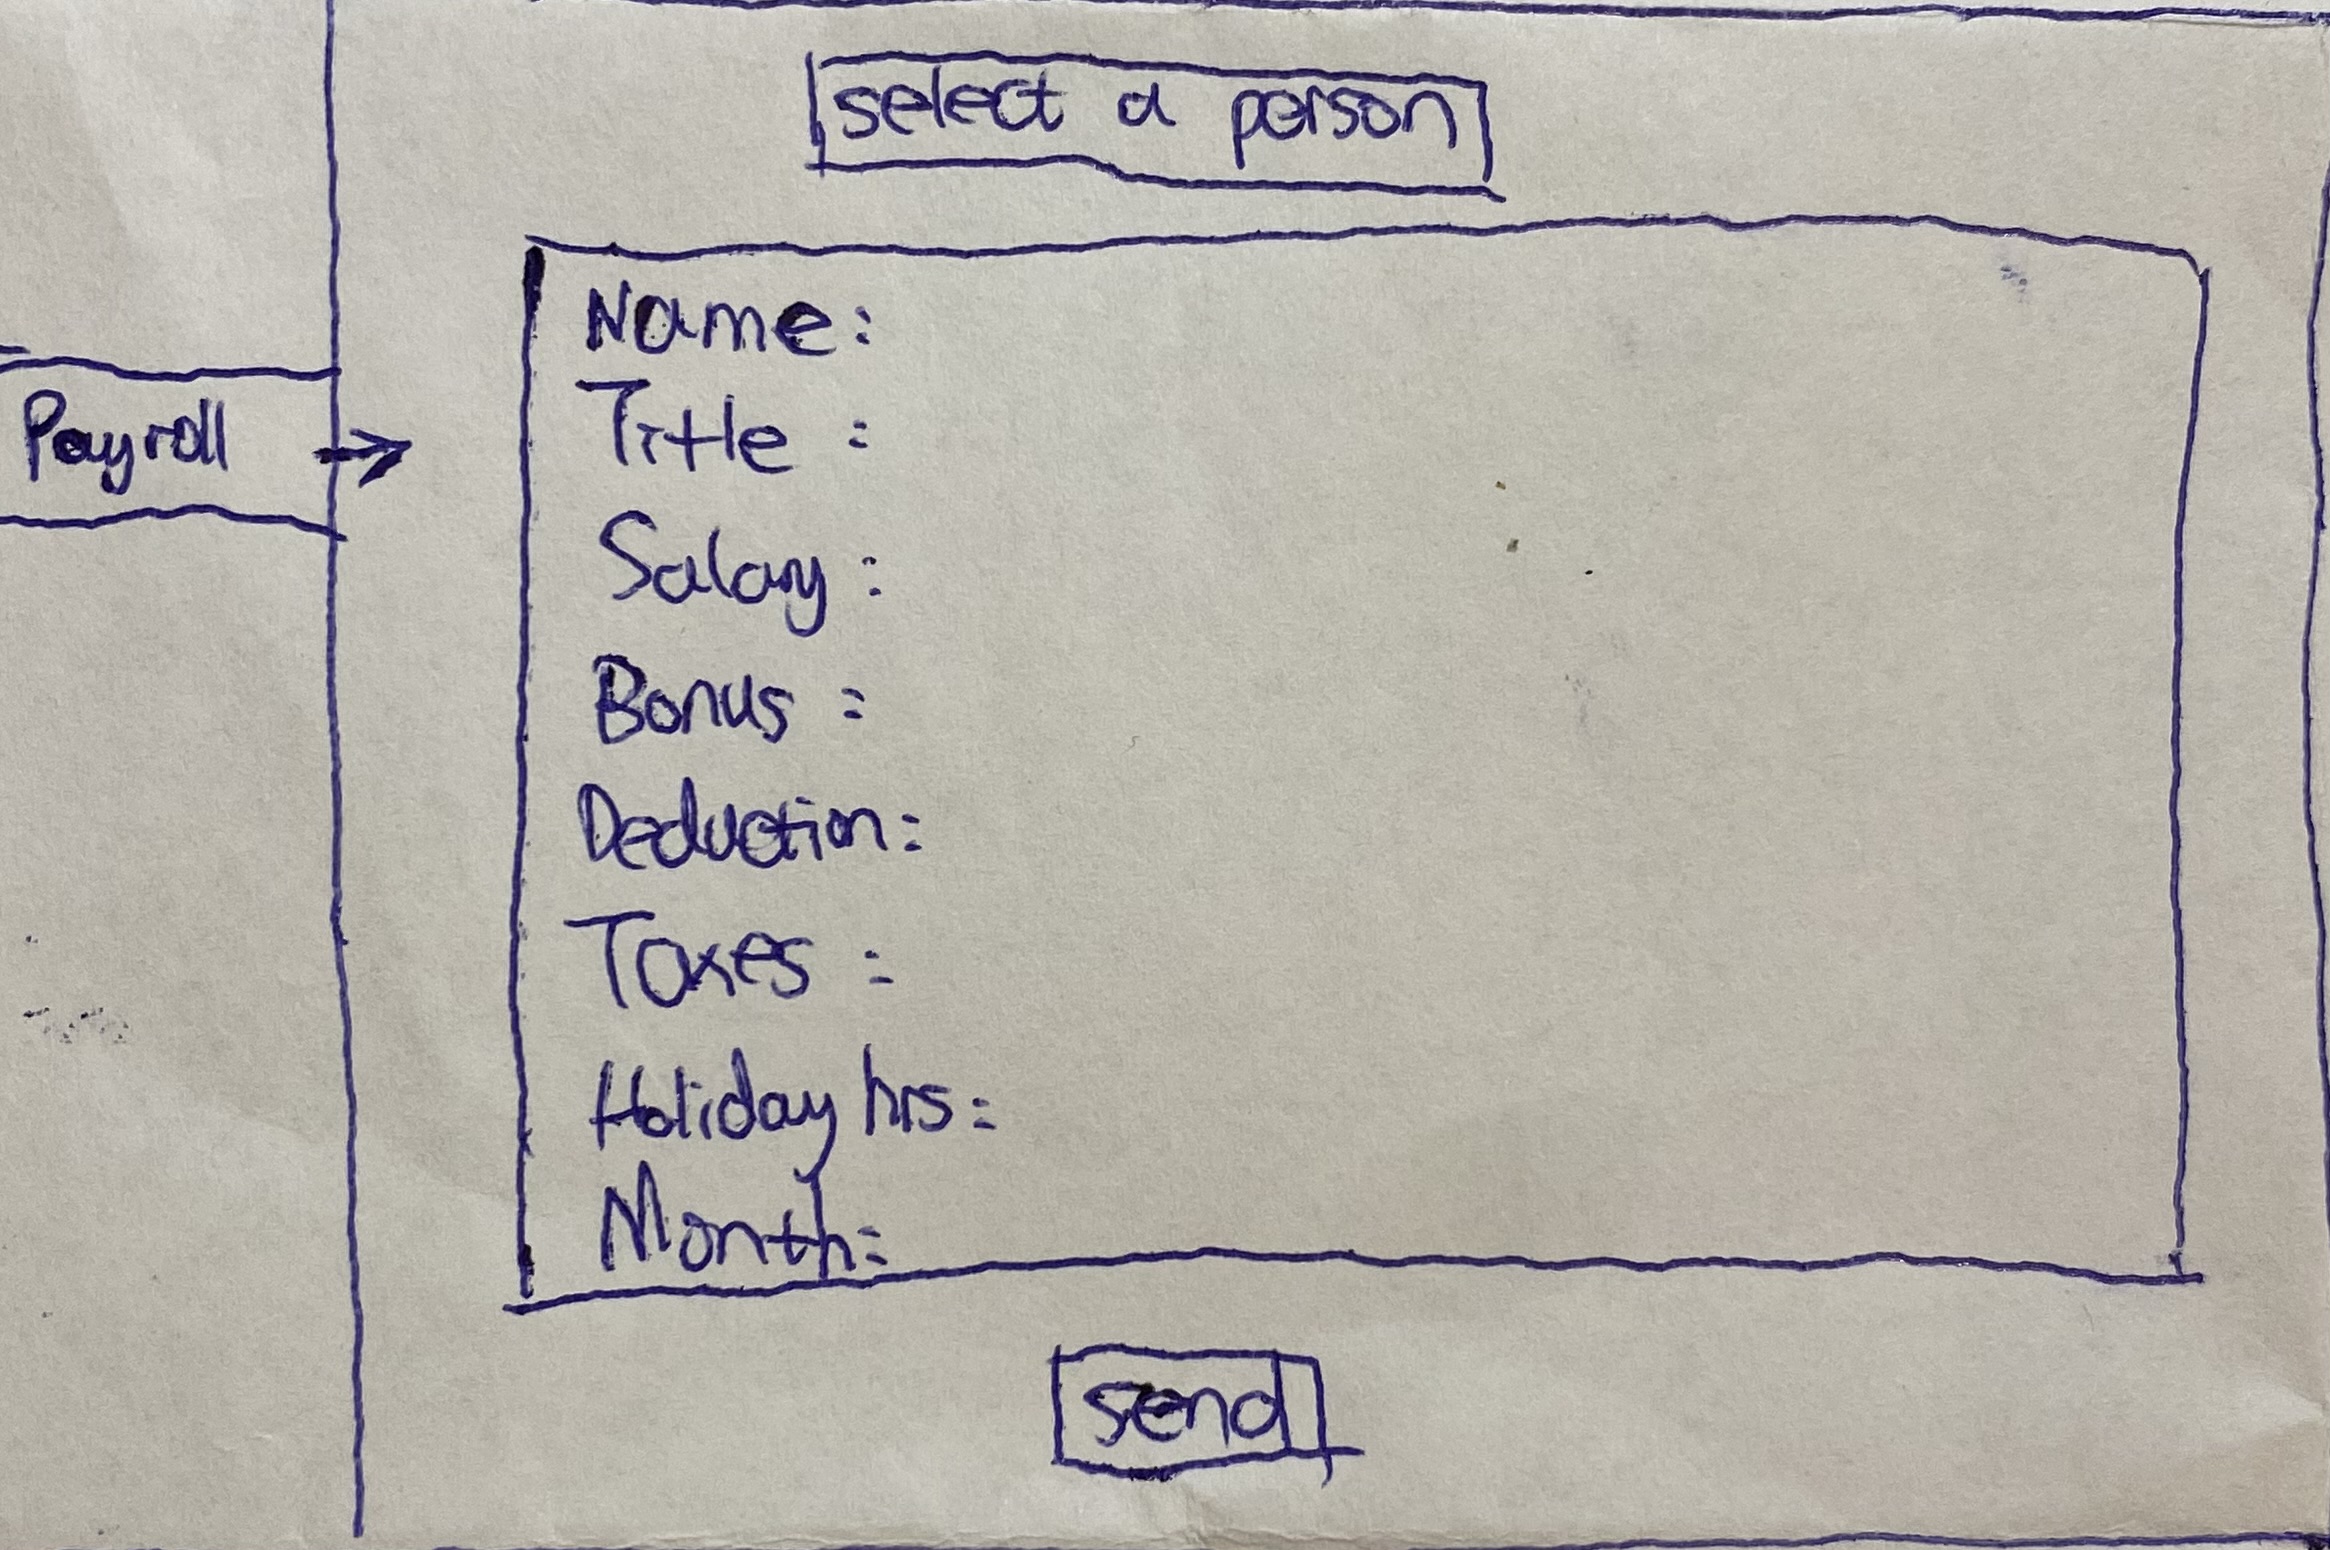 select a person
Name:
Title :
Payroll
Salary :
Bonus :
Deduction:
Taxes :
Holiday hrs:
Month:
send